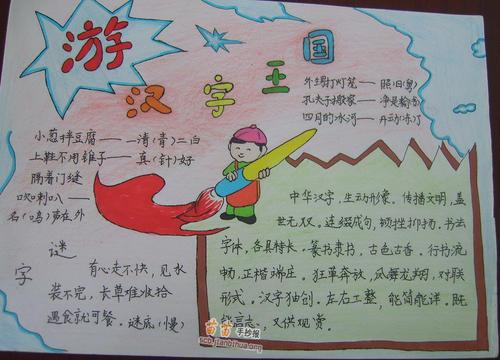 游
汉字王国
外甥打灯笼——照旧(舅)
孔夫子搬家——净是输(书)
四月的冰河——开动(冻)了
小葱拌豆腐——一清(青)二白
上鞋不用锥子——真(针)好
隔着门缝
吹喇叭——
名(鸣)声在外
谜
字
有心走不快，见水
装不完，长草难收拾
遇食就可餐。谜底(慢)
中华汉字，生动形象。传播文明，盖
世无双。连缀成句，顿挫抑扬。书法
字体，各具特长。篆书隶书，古色古香。行书流
畅，正楷端庄。狂草奔放，凤舞龙翔，对联
形式，汉字独创。左右工整，能简能详。既
能言志，又供观赏。
苗苗手抄报
sco.jianbihua.org